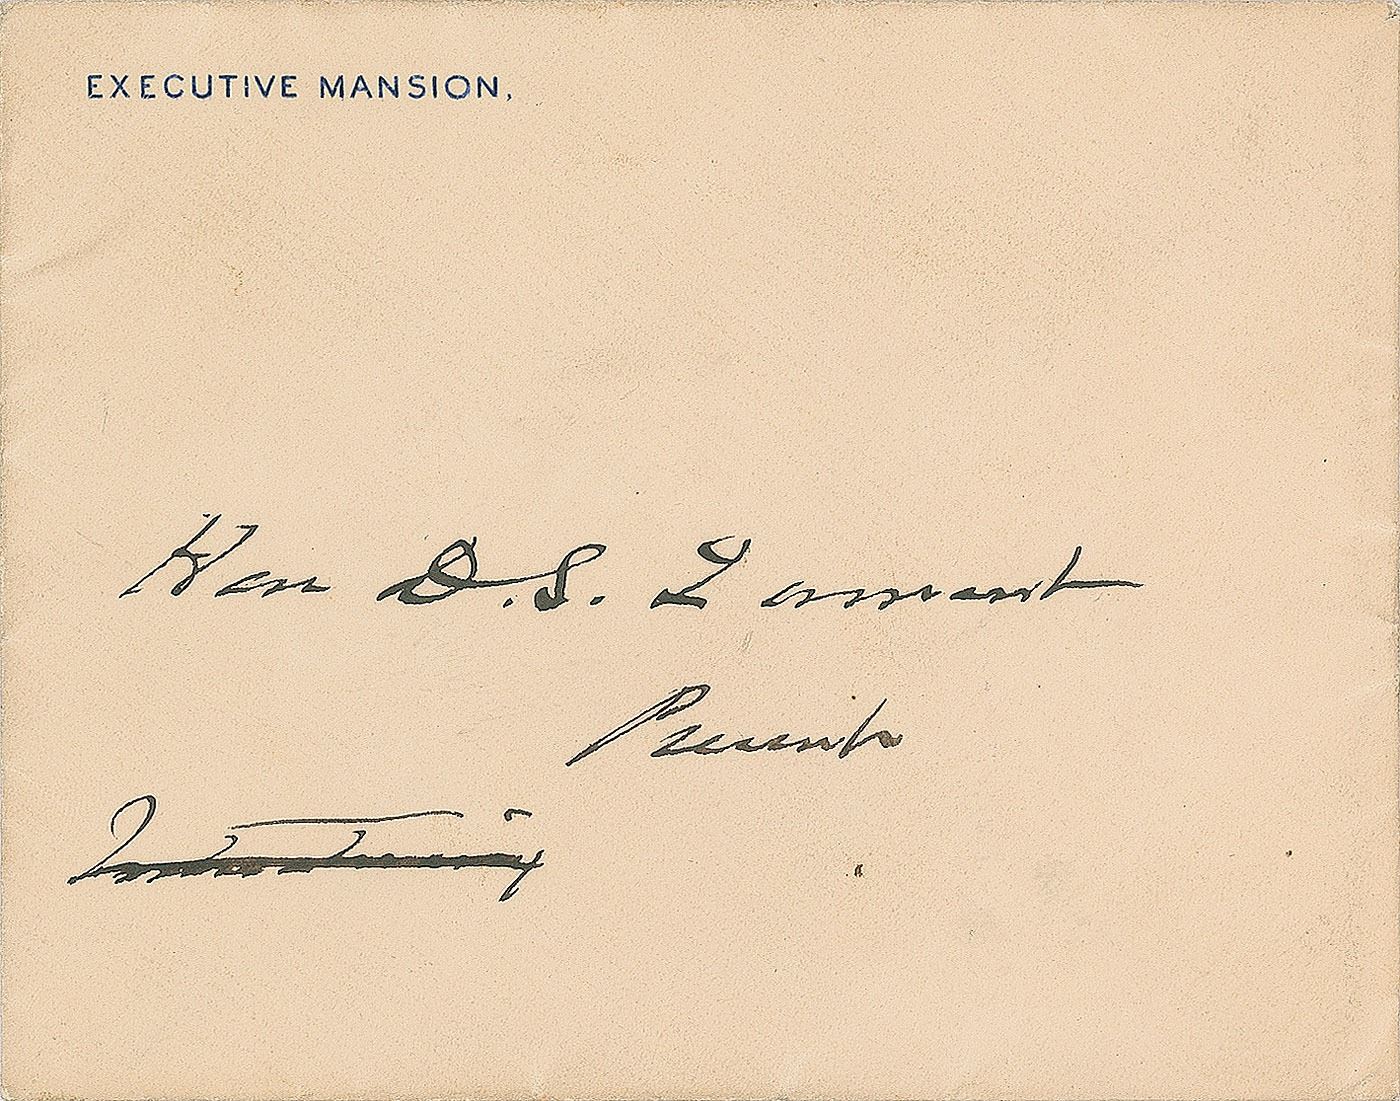 EXECUTIVE MANSION,
Hon D.S. Lamont
Present